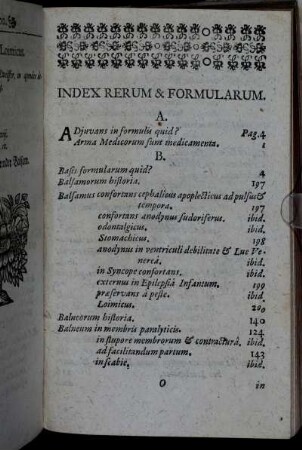 INDEX RERUM & FORMULARUM.
A.
ADjuvans in formulis quid? Pag. 4
Arma Medicorum sunt medicamenta. 1
B.
Basis formularum quid? 4
Balsamorum historia. 197
Balsamus confortans cephalicus apoplecticus ad pulsus &
tempora. 197
confortans anodynus sudoriferus. ibid.
odontalgicus. ibid.
Stomachicus. 198
anodynus in ventriculi debilitate & Lue Ve-
nereâ. ibid.
in Syncope confortans. ibid.
externus in Epilepsiâ Infantum. 199
præservans à peste. ibid.
Loimicus. 200
Balneorum historia. 140
Balneum in membris paralyticis. 124
in stupore membrorum & contracturâ. ibid.
ad facilitandum partum. 143
in scabie. ibid.
O in
Loimicus.